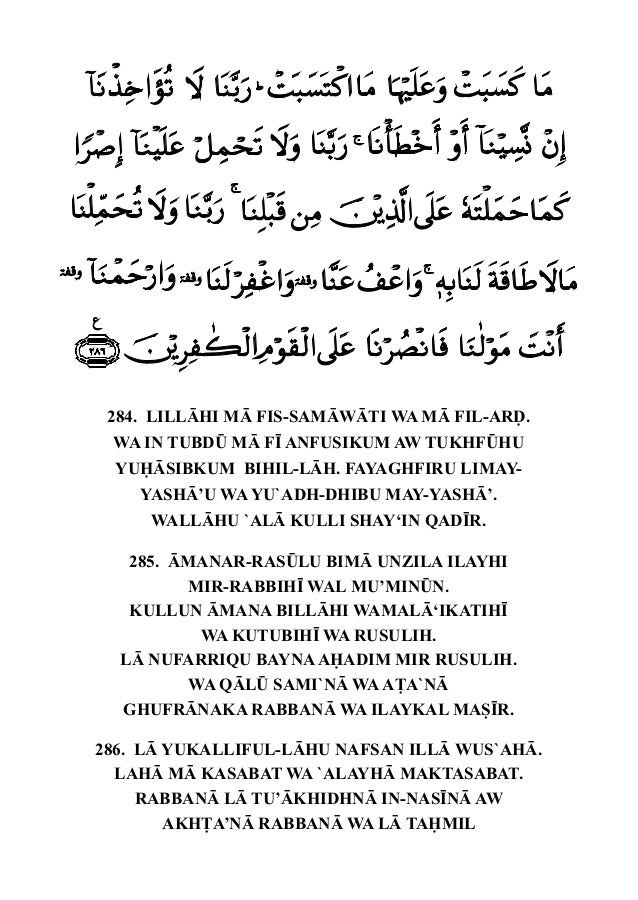 مَا كَسَبَتْ وَعَلَيْهَا مَا اكْتَسَبَتْ ؕ رَبَّنَا لَا تُؤَاخِذْنَآ
اِنْ نَّسِيْنَآ اَوْ اَخْطَأْنَا ۚ رَبَّنَا وَلَا تَحْمِلْ عَلَيْنَآ اِصْرًا
كَمَا حَمَلْتَهٗ عَلَى الَّذِيْنَ مِنْ قَبْلِنَا ۚ رَبَّنَا وَلَا تُحَمِّلْنَا
مَا لَا طَاقَةَ لَنَا بِهٖ ۚ وَاعْفُ عَنَّا وقفة وَاغْفِرْ لَنَا وقفة وَارْحَمْنَآ وقفة
اَنْتَ مَوْلٰىنَا فَانْصُرْنَا عَلَى الْقَوْمِ الْكٰفِرِيْنَ ﴿٢٨٦﴾ ع
284. LILLĀHI MĀ FIS-SAMĀWĀTI WA MĀ FIL-ARḌ.
WA IN TUBDŪ MĀ FĪ ANFUSIKUM AW TUKHFŪHU
YUḤĀSIBKUM BIHIL-LĀH. FAYAGHFIRU LIMAY-
YASHĀ’U WA YU`ADH-DHIBU MAY-YASHĀ’.
WALLĀHU `ALĀ KULLI SHAY‘IN QADĪR.
285. ĀMANAR-RASŪLU BIMĀ UNZILA ILAYHI
MIR-RABBIHĪ WAL MU’MINŪN.
KULLUN ĀMANA BILLĀHI WAMALĀ‘IKATIHĪ
WA KUTUBIHĪ WA RUSULIH.
LĀ NUFARRIQU BAYNA AḤADIM MIR RUSULIH.
WA QĀLŪ SAMI`NĀ WA AṬA`NĀ
GHUFRĀNAKA RABBANĀ WA ILAYKAL MAṢĪR.
286. LĀ YUKALLIFUL-LĀHU NAFSAN ILLĀ WUS`AHĀ.
LAHĀ MĀ KASABAT WA `ALAYHĀ MAKTASABAT.
RABBANĀ LĀ TU’ĀKHIDHNĀ IN-NASĪNĀ AW
AKHṬA’NĀ RABBANĀ WA LĀ TAḤMIL